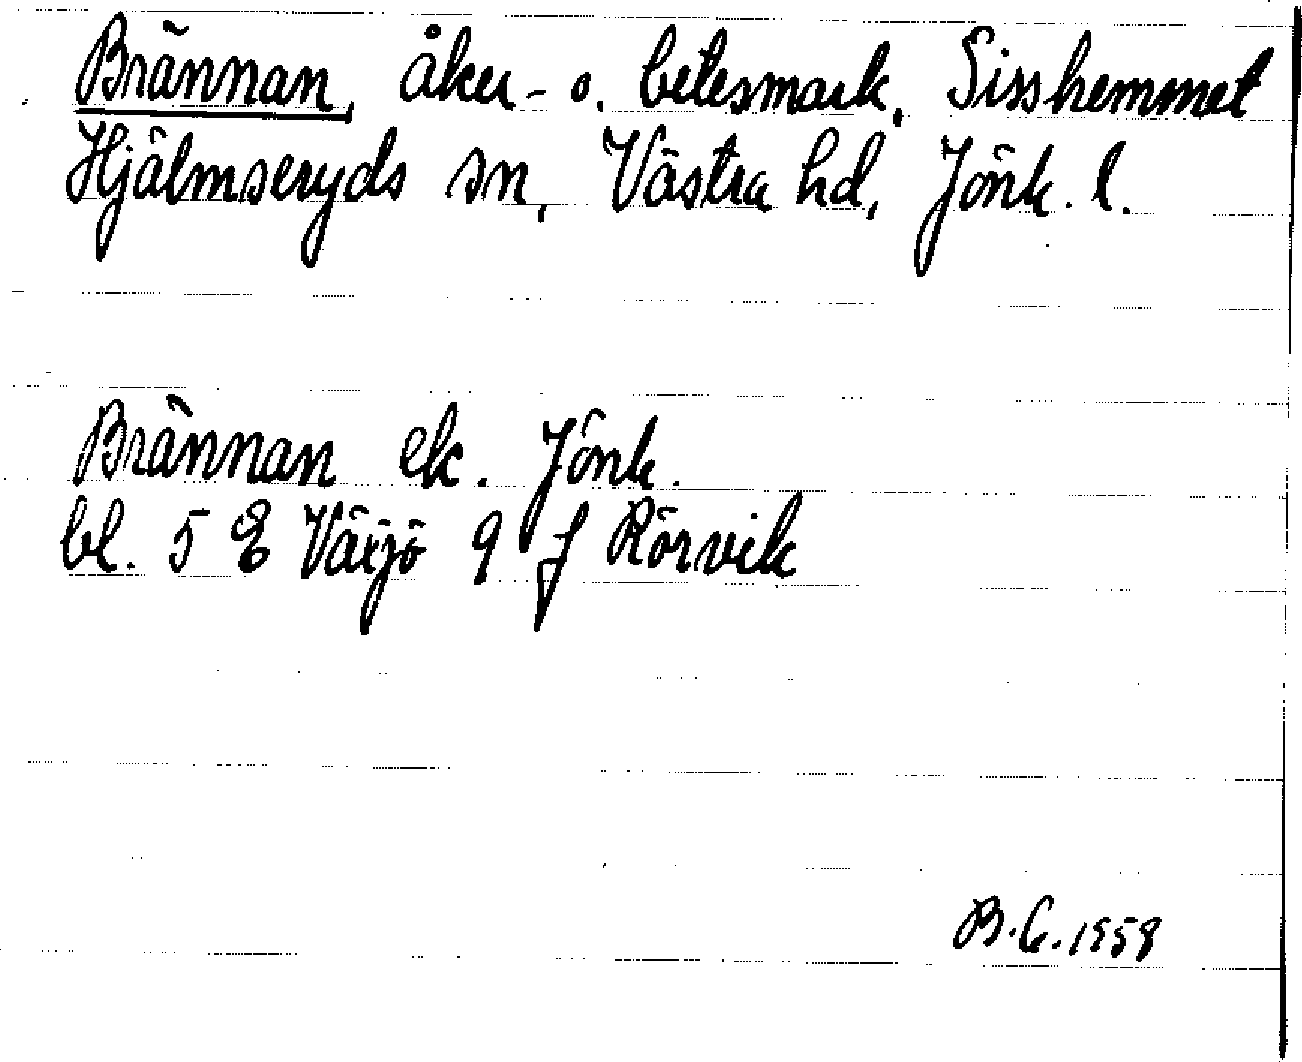 Brännan, åker- o. betesmark, Sisshemmet
Hjälmseryds sn, Västra hd, Jönk. l.
Brännan ek. Jönk.
bl. 5 E Växjö 9 f Rörvik
B.G. 1958